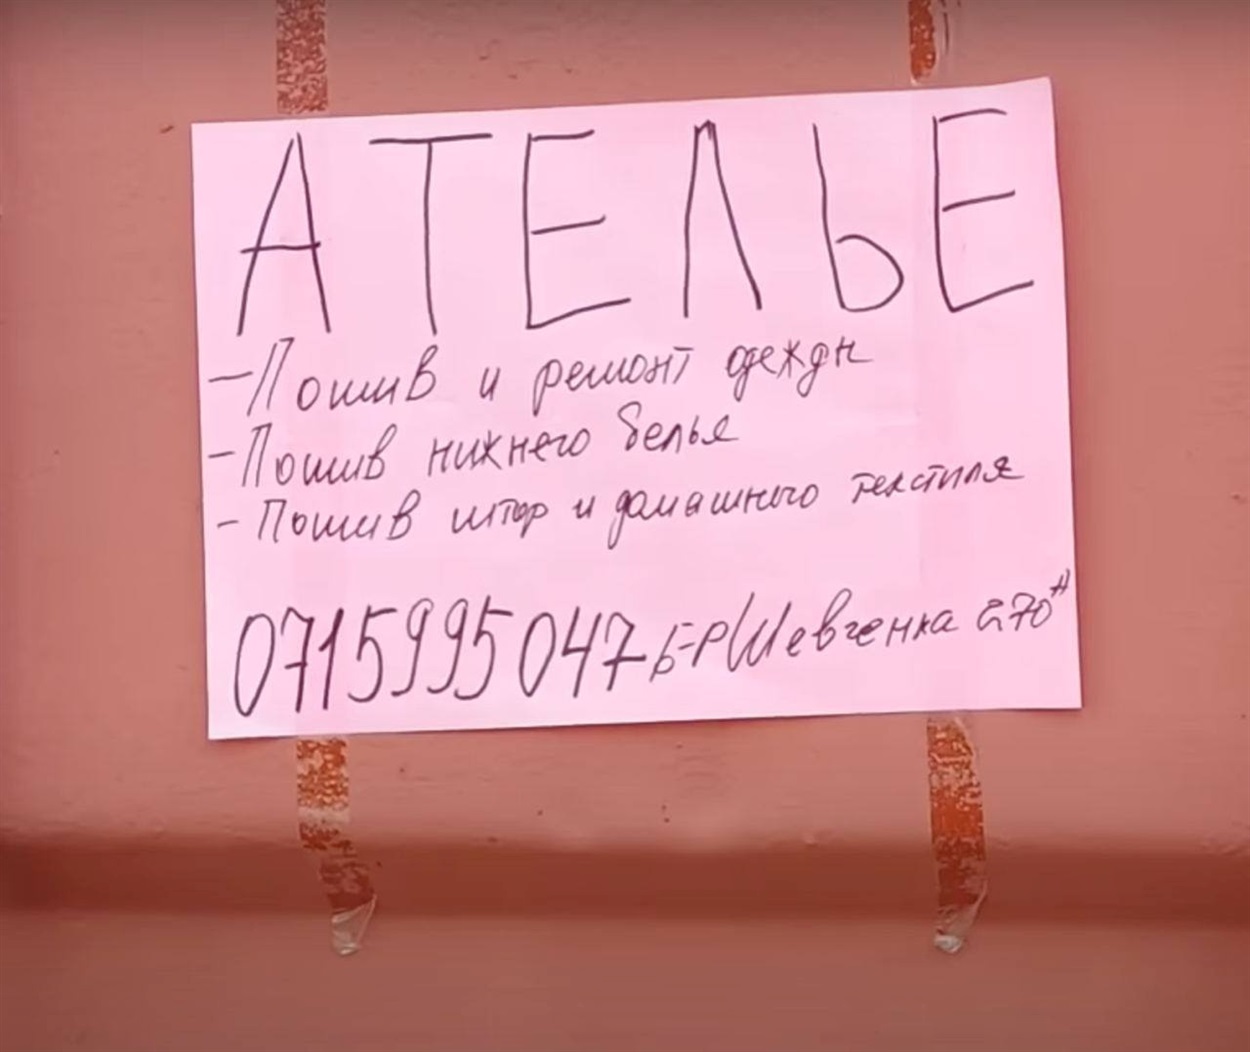 АТЕЛЬЕ
- Пошив и ремонт одежды
- Пошив нижнего белья
- Пошив штор и домашнего текстиля
0715995047 Б-Р Шевченка 270"